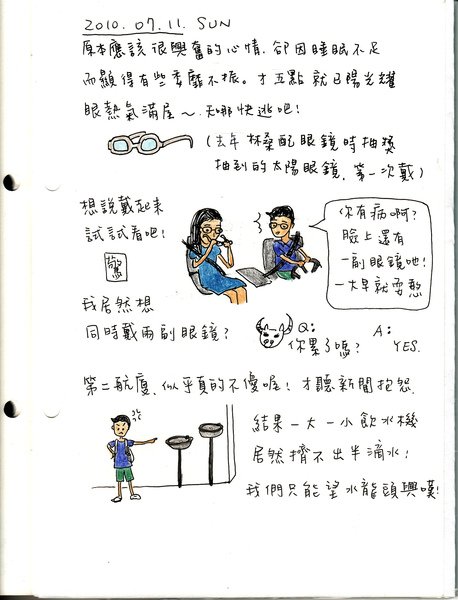 2010.07.11. SUN
原本應該很興奮的心情,卻因睡眠不足
而顯得有些委靡不振。才五點就日陽光耀
眼熱氣滿屋~天哪快逃吧!
(去年林桑配眼鏡時抽獎
抽到的太陽眼鏡,第一次戴)
想說戴起來
試試看吧!
驚
我居然想
同時戴兩副眼鏡?
你有病啊?
臉上還有
一副眼鏡吔!
一大早就耍憨
Q:
你累了嗎?
A:
YES.
第二航廈,似乎真的不優喔!才聽新聞抱怨,
結果一大一小飲水機
居然擠不出半滴水!
我們只能望水龍頭興嘆!